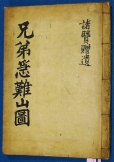 諸賢贈遺
兄弟急難山圖